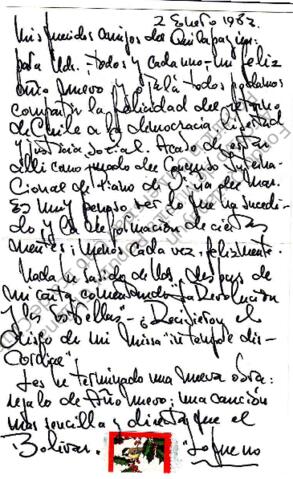 2 Enero 1983.
Mis queridos amigos del Quilapayún:
para Uds., todos y cada uno, un feliz
año nuevo y ojalá todos podamos
compartir la felicidad del retorno
de Chile a la democracia, libertad
y justicia social. Acabo de estar
allí como jurado del Concurso Interna-
cional de Piano de Viña del Mar.
Es muy penoso ver lo que ha sucedi-
do y la deformación de ciertas
mentes: menos cada vez, felizmente.
Nada he sabido de Uds. después de
mi carta comentando "La Revolución
y las estrellas". ¿Recibieron el
disco de mi Missa in tempore dis-
cordiae?
Les he terminado una nueva obra:
regalo de Año nuevo; una canción
más sencilla y directa que el
Bolívar.